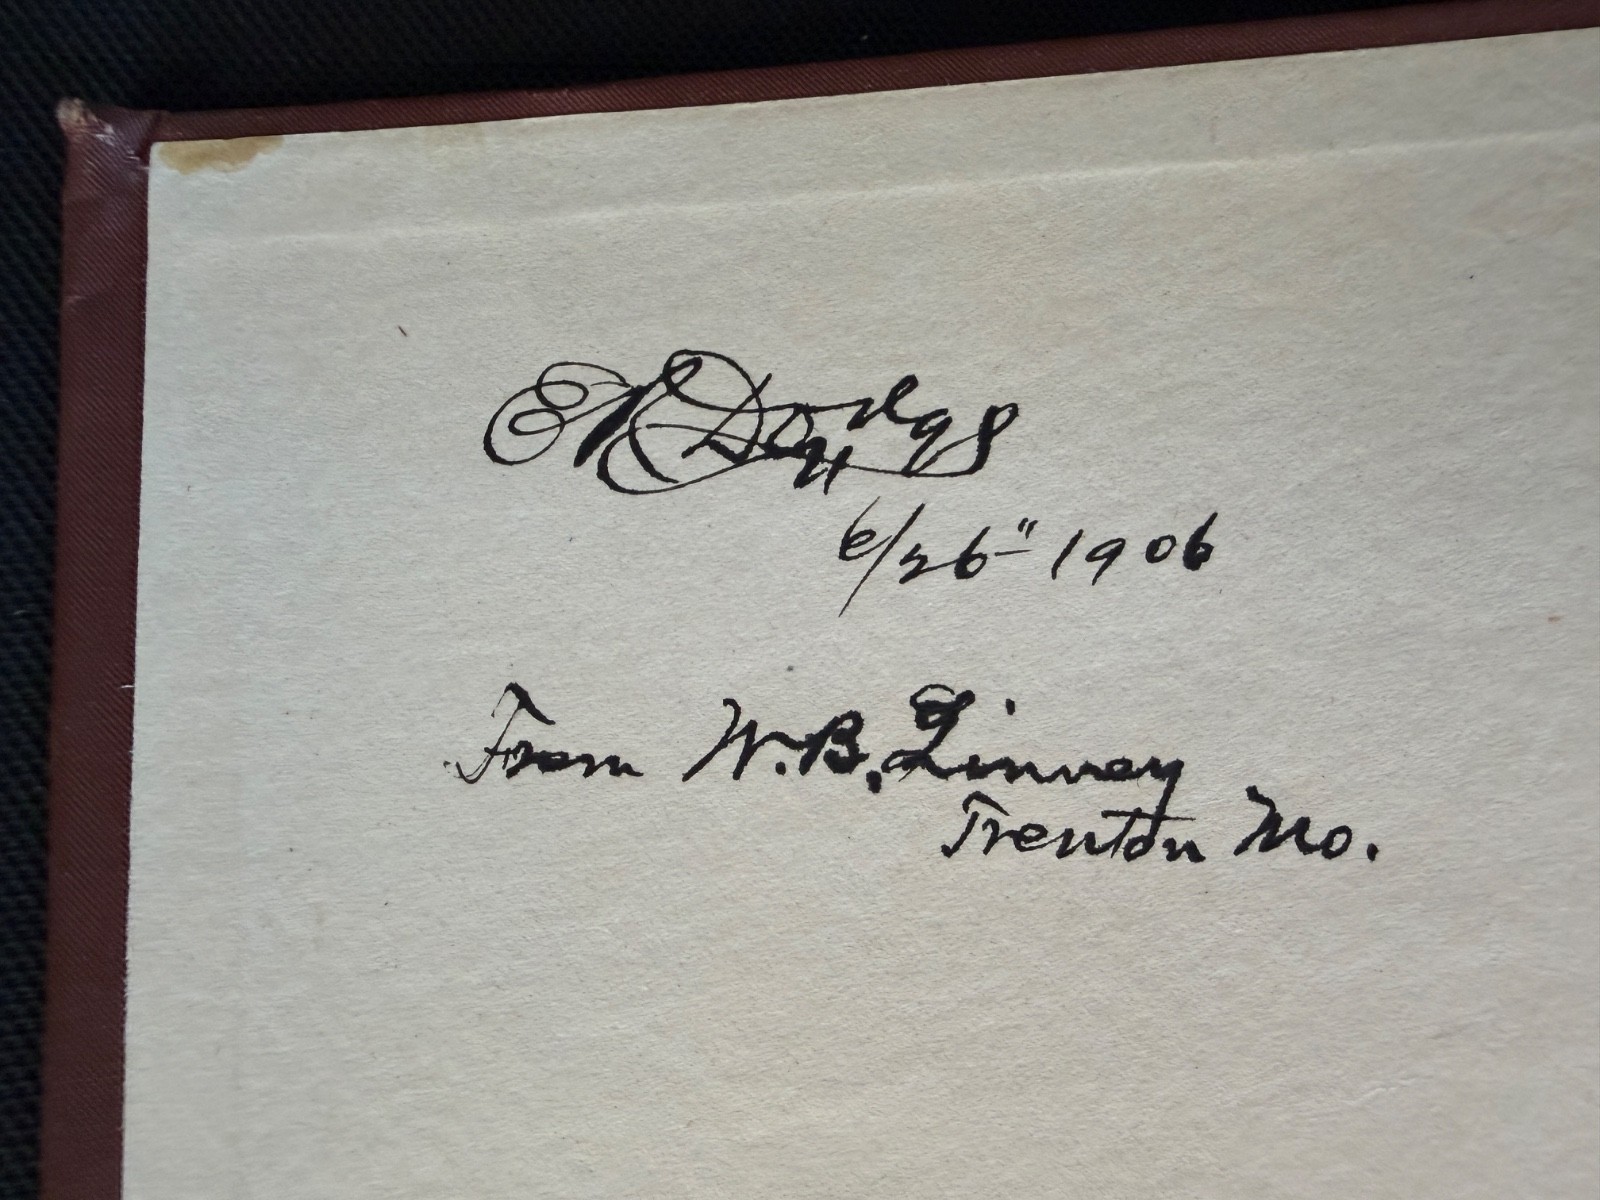 6/26" 1906
From W. B. Linney
Trenton Mo.